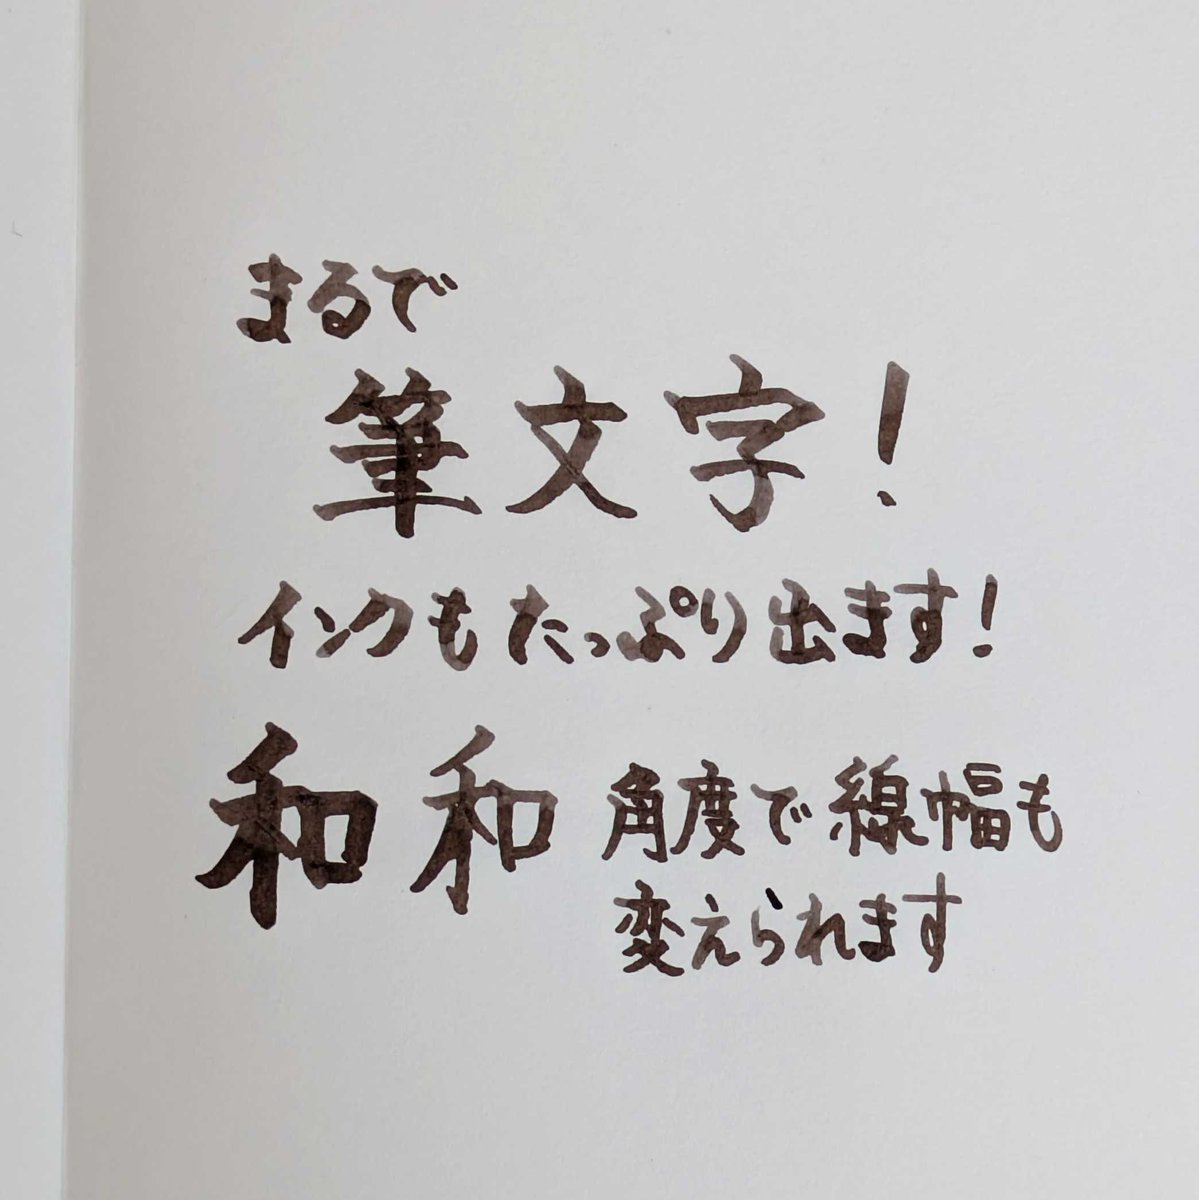 まるで
筆文字!
インクもたっぷり出ます!
和和 角度で線幅も
変えられます